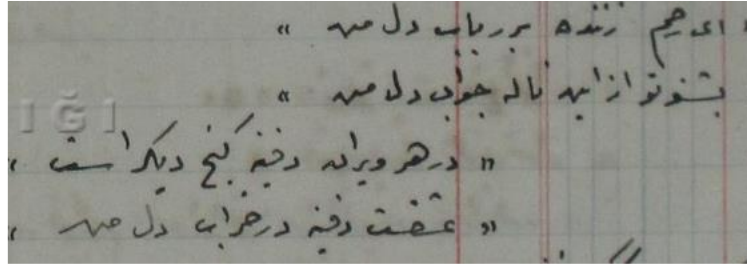 ای زخم زننده بر رباب دل من "
بشنو تو از این ناله جواب دل من "
" در هر ویران دفینه گنج دیگر است "
" عشقت دفینه در خراب دل من "
IĞI